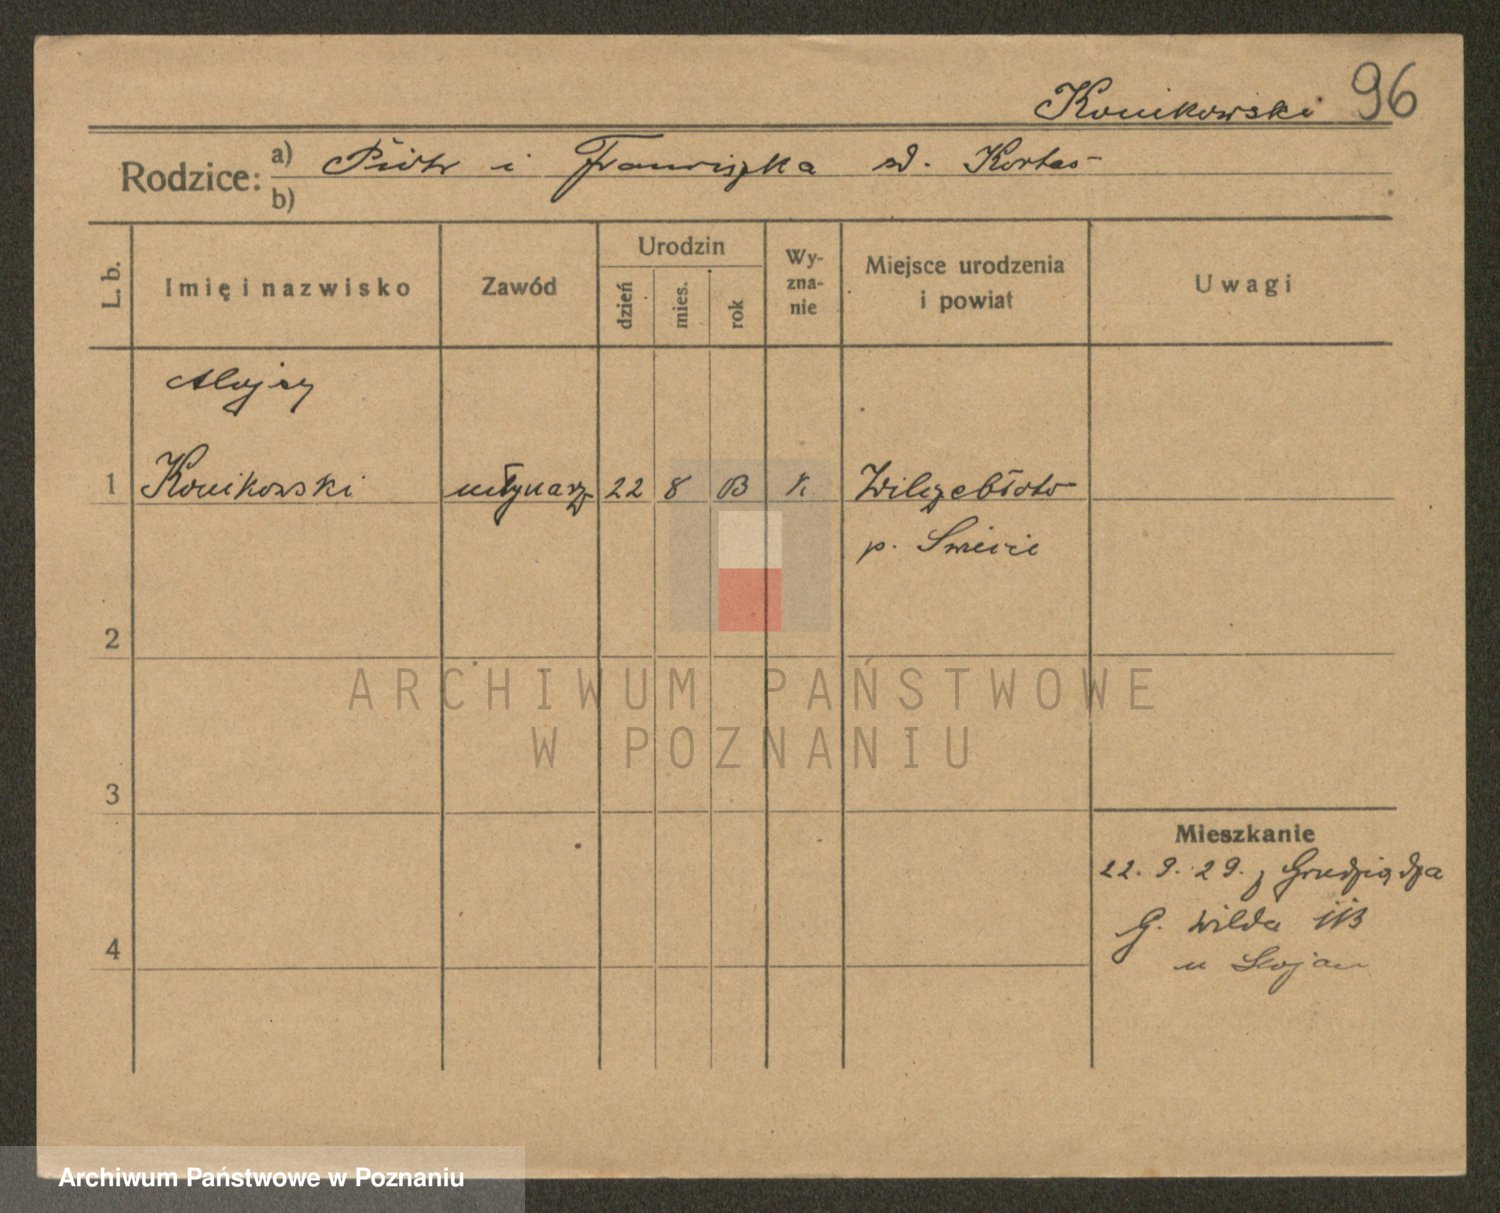 Konikowski 96
Rodzice: a) Piotr i Franciszka zd. Kortas
b)
L. b. Imię i nazwisko Zawód Urodzin dzień mies. rok Wy-zna-nie Miejsce urodzenia i powiat Uwagi
Alojzy
1 Konikowski młynarz 22 8 K Wilczebłoto
p. Świecie
2
3
4
Mieszkanie
22. 9. 29. z Grudziądza
G. Wilda
u
ARCHIWUM PAŃSTWOWE
W POZNANIU
Archiwum Państwowe w Poznaniu